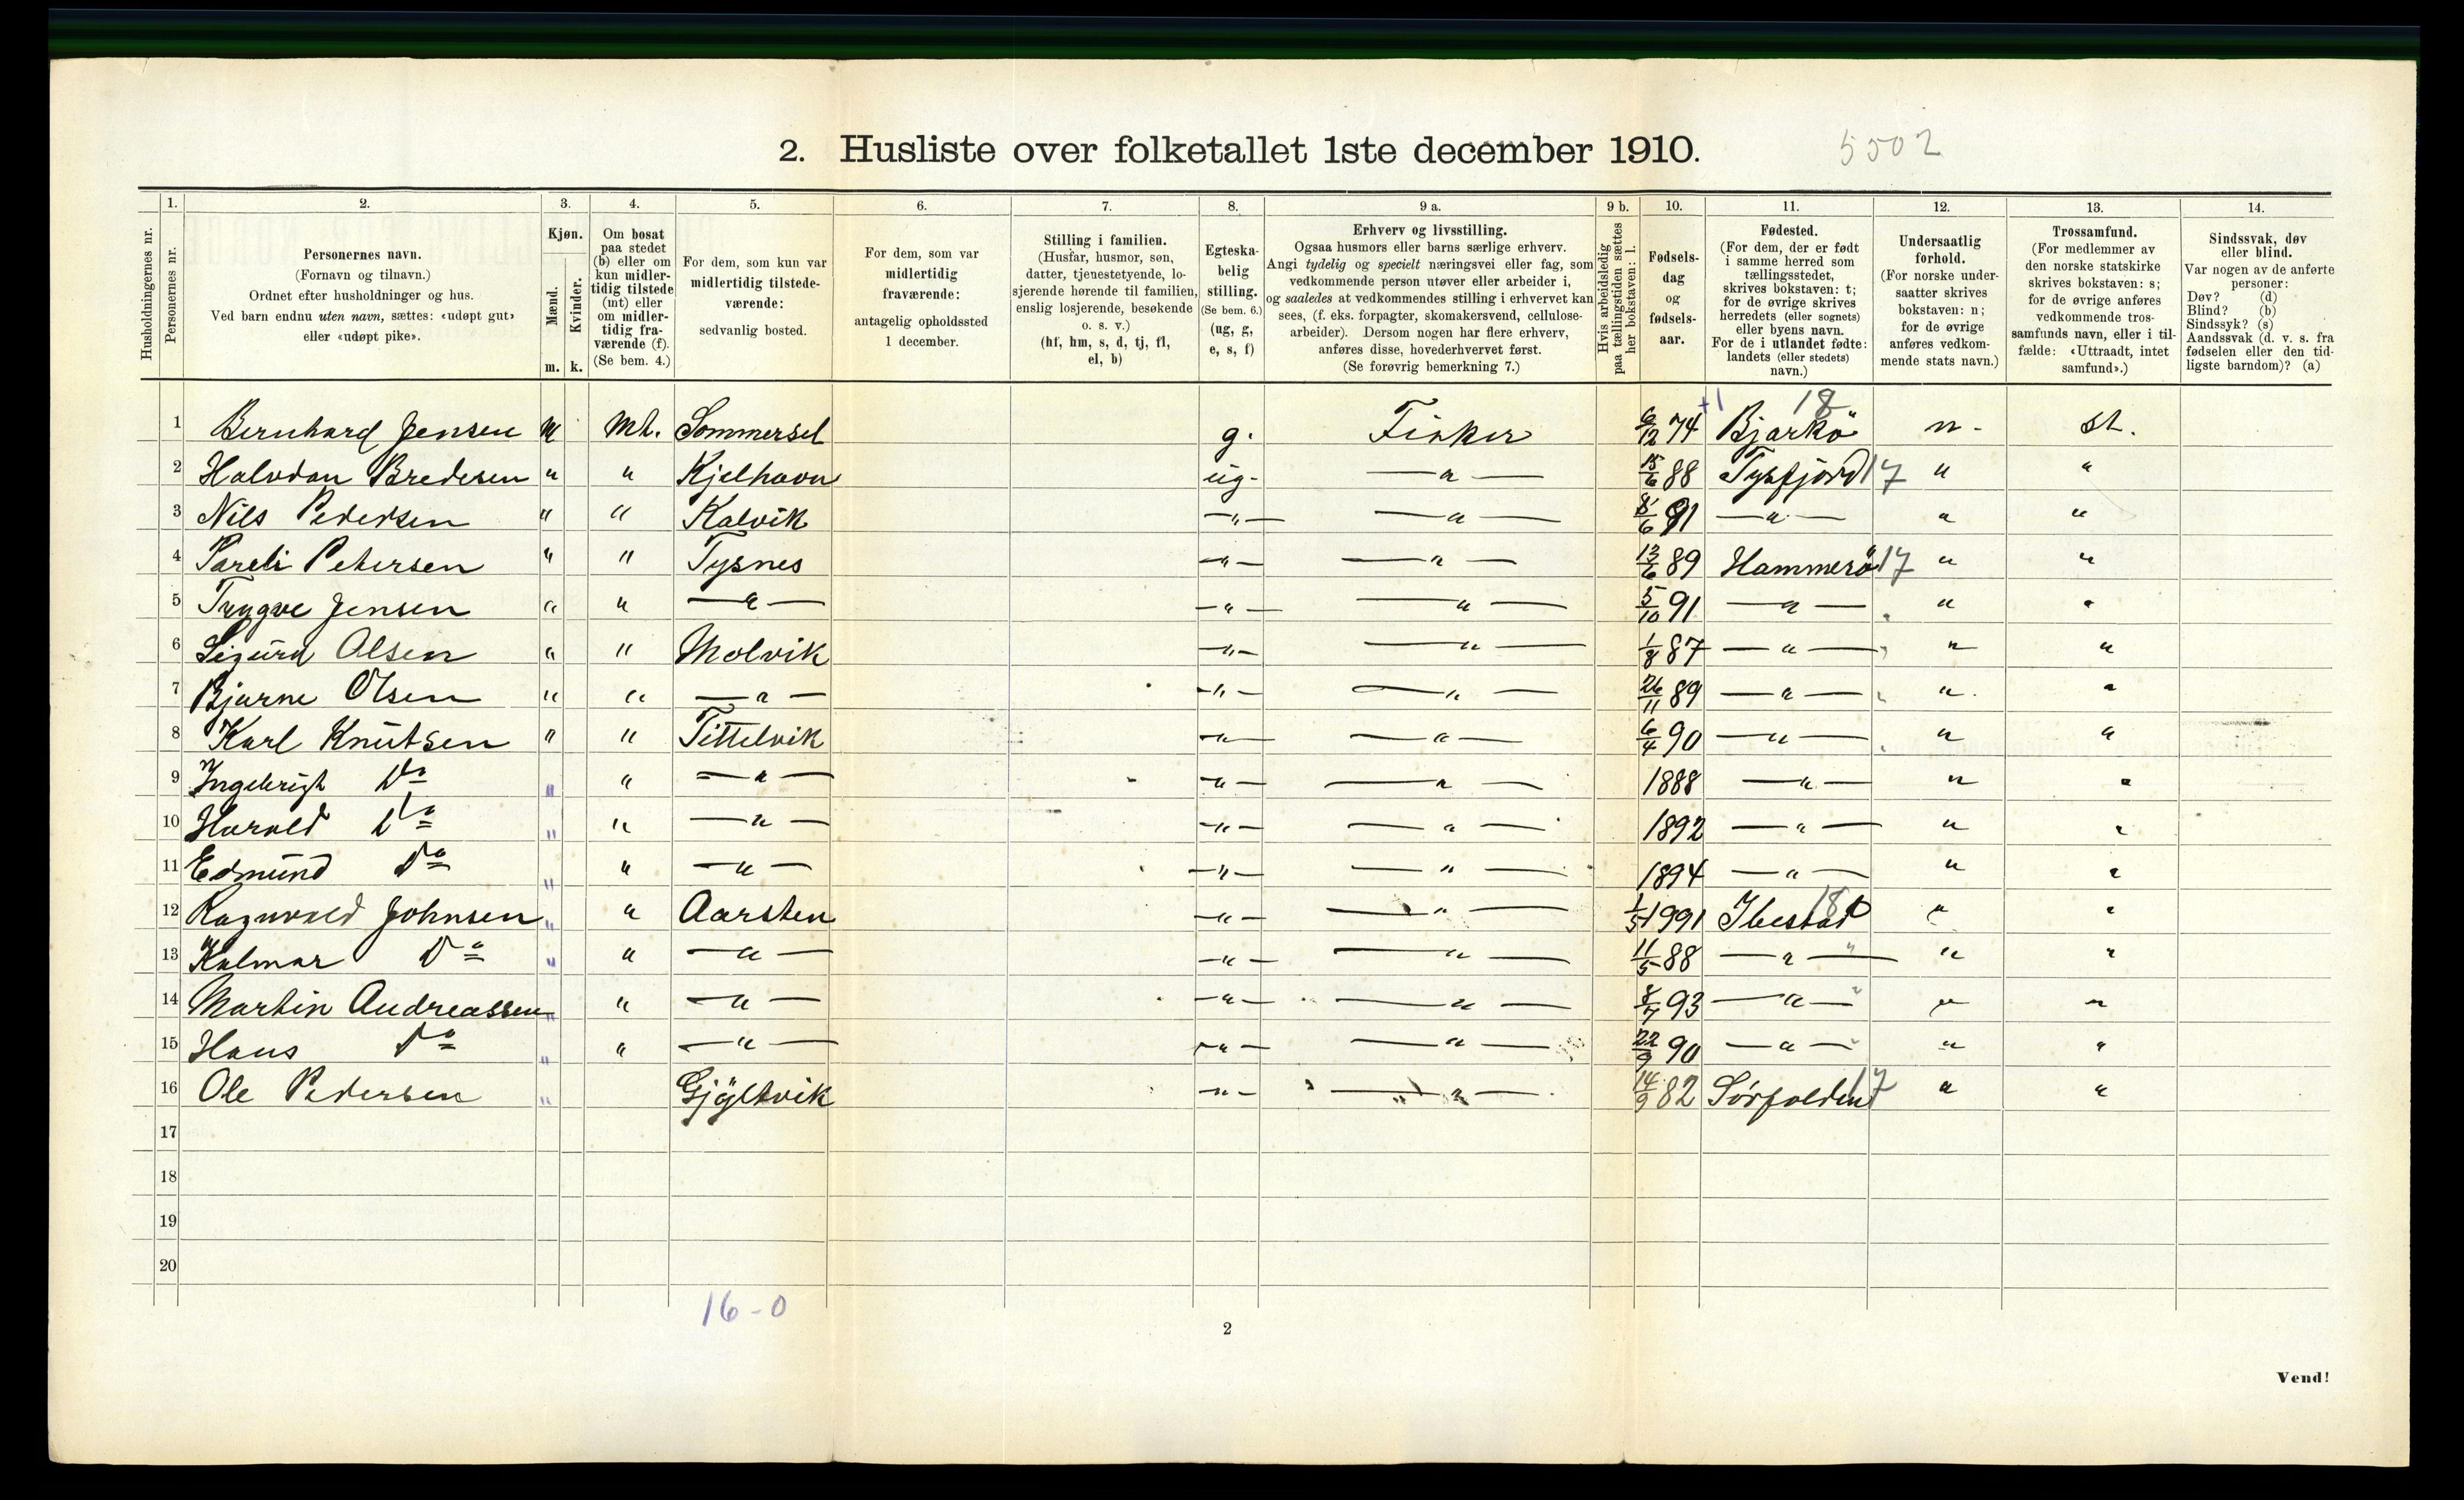 2. Husliste over folketallet 1ste december 1910. 5502
Husholdningernes nr.
1. Personernes nr.
2. Personernes navn.
(Fornavn og tilnavn.)
Ordnet efter husholdninger og hus.
Ved barn endnu uten navn, sættes: «udøpt gut»
eller «udøpt pike».
3. Kjøn.
Mænd. Kvinder.
m. k.
4. Om bosat
paa stedet
(b) eller om
kun midler-
tidig tilstede
(mt) eller
om midler-
tidig fra-
værende (f).
(Se bem. 4.)
5. For dem, som kun var
midlertidig tilstede-
værende:
sedvanlig bosted.
6. For dem, som var
midlertidig
fraværende:
antagelig opholdssted
1 december.
7. Stilling i familien.
(Husfar, husmor, søn,
datter, tjenestetyende, lo-
sjerende hørende til familien,
enslig losjerende, besøkende
o. s. v.)
(hf, hm, s, d, tj, fl,
el, b)
8. Egteska-
belig
stilling.
(Se bem. 6.)
(ug, g,
e, s, f)
9 a. Erhverv og livsstilling.
Ogsaa husmors eller barns særlige erhverv.
Angi tydelig og specielt næringsvei eller fag, som
vedkommende person utøver eller arbeider i,
og saaledes at vedkommendes stilling i erhvervet kan
sees, (f. eks. forpagter, skomakersvend, cellulose-
arbeider). Dersom nogen har flere erhverv,
anføres disse, hovederhvervet først.
(Se forøvrig bemerkning 7.)
9 b. Hvis arbeidsledig
paa tællingstiden sættes
her bokstaven: l.
10. Fødsels-
dag
og
fødsels-
aar.
11. Fødested.
(For dem, der er født
i samme herred som
tællingsstedet,
skrives bokstaven: t;
for de øvrige skrives
herredets (eller sognets)
eller byens navn.
For de i utlandet fødte:
landets (eller stedets)
navn.)
12. Undersaatlig
forhold.
(For norske under-
saatter skrives
bokstaven: n;
for de øvrige
anføres vedkom-
mende stats navn.)
13. Trossamfund.
(For medlemmer av
den norske statskirke
skrives bokstaven: s;
for de øvrige anføres
vedkommende tros-
samfunds navn, eller i til-
fælde: «Uttraadt, intet
samfund».)
14. Sindssvak, døv
eller blind.
Var nogen av de anførte
personer:
Døv? (d)
Blind? (b)
Sindssyk? (s)
Aandssvak (d. v. s. fra
fødselen eller den tid-
ligste barndom)? (a)
1 Bernhard Jensen M Mt. Sommersel g. Fisker 6/12 74 +1 Bjarkö 18 n. st.
2 Halvdan Bredesen " " Kjelhavn ug. —"— 15/6 88 Tysfjord 17 " "
3 Nils Pedersen " " Kalvik —"— —"— 8/6 91 —"— " "
4 Pareli Petersen " " Tysnes —"— —"— 13/6 89 Hammerö 17 " "
5 Trygve Jensen " " —"— —"— —"— 5/10 91 —"— " "
6 Sigurd Olsen " " Molvik —"— —"— 1/8 87 —"— " "
7 Bjarne Olsen " " —"— —"— —"— 26/11 89 —"— " "
8 Karl Knutsen " " Tittelvik —"— —"— 6/4 90 —"— " "
9 Ingebrigt Do " " —"— —"— —"— 1888 —"— " "
10 Harald Do " " —"— —"— —"— 1892 —"— " "
11 Edmund Do " " —"— —"— —"— 1894 —"— " "
12 Ragnvald Johnsen " " Aarsten —"— —"— 1/5 1991 Ibestad 18 " "
13 Kalmar Do " " —"— —"— —"— 11/5 88 —"— " "
14 Martin Andreassen " " —"— —"— —"— 8/7 93 —"— " "
15 Hans Do " " —"— —"— —"— 22/9 90 —"— " "
16 Ole Pedersen " Gjyltvik —"— —"— 14/9 82 Sörfolden 17 " "
17
18
19
20
16 - 0
2
Vend!